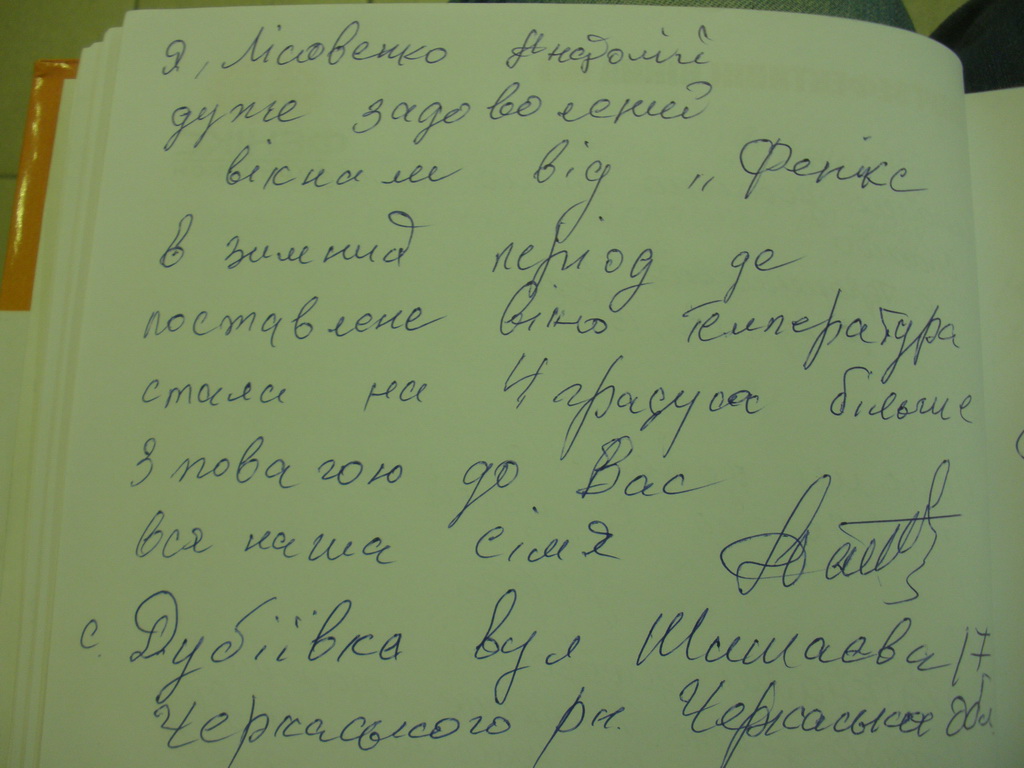 Я, Лісовенко Анатолій
дуже задоволений
вікнами від „Фенікс
в зимний період де
поставлене вікно температура
стала на 4 градуса більше
З повагою до Вас
вся наша сімя
с. Дубіївка вул Шишаєва 17
Черкаського рн. Черкаська обл